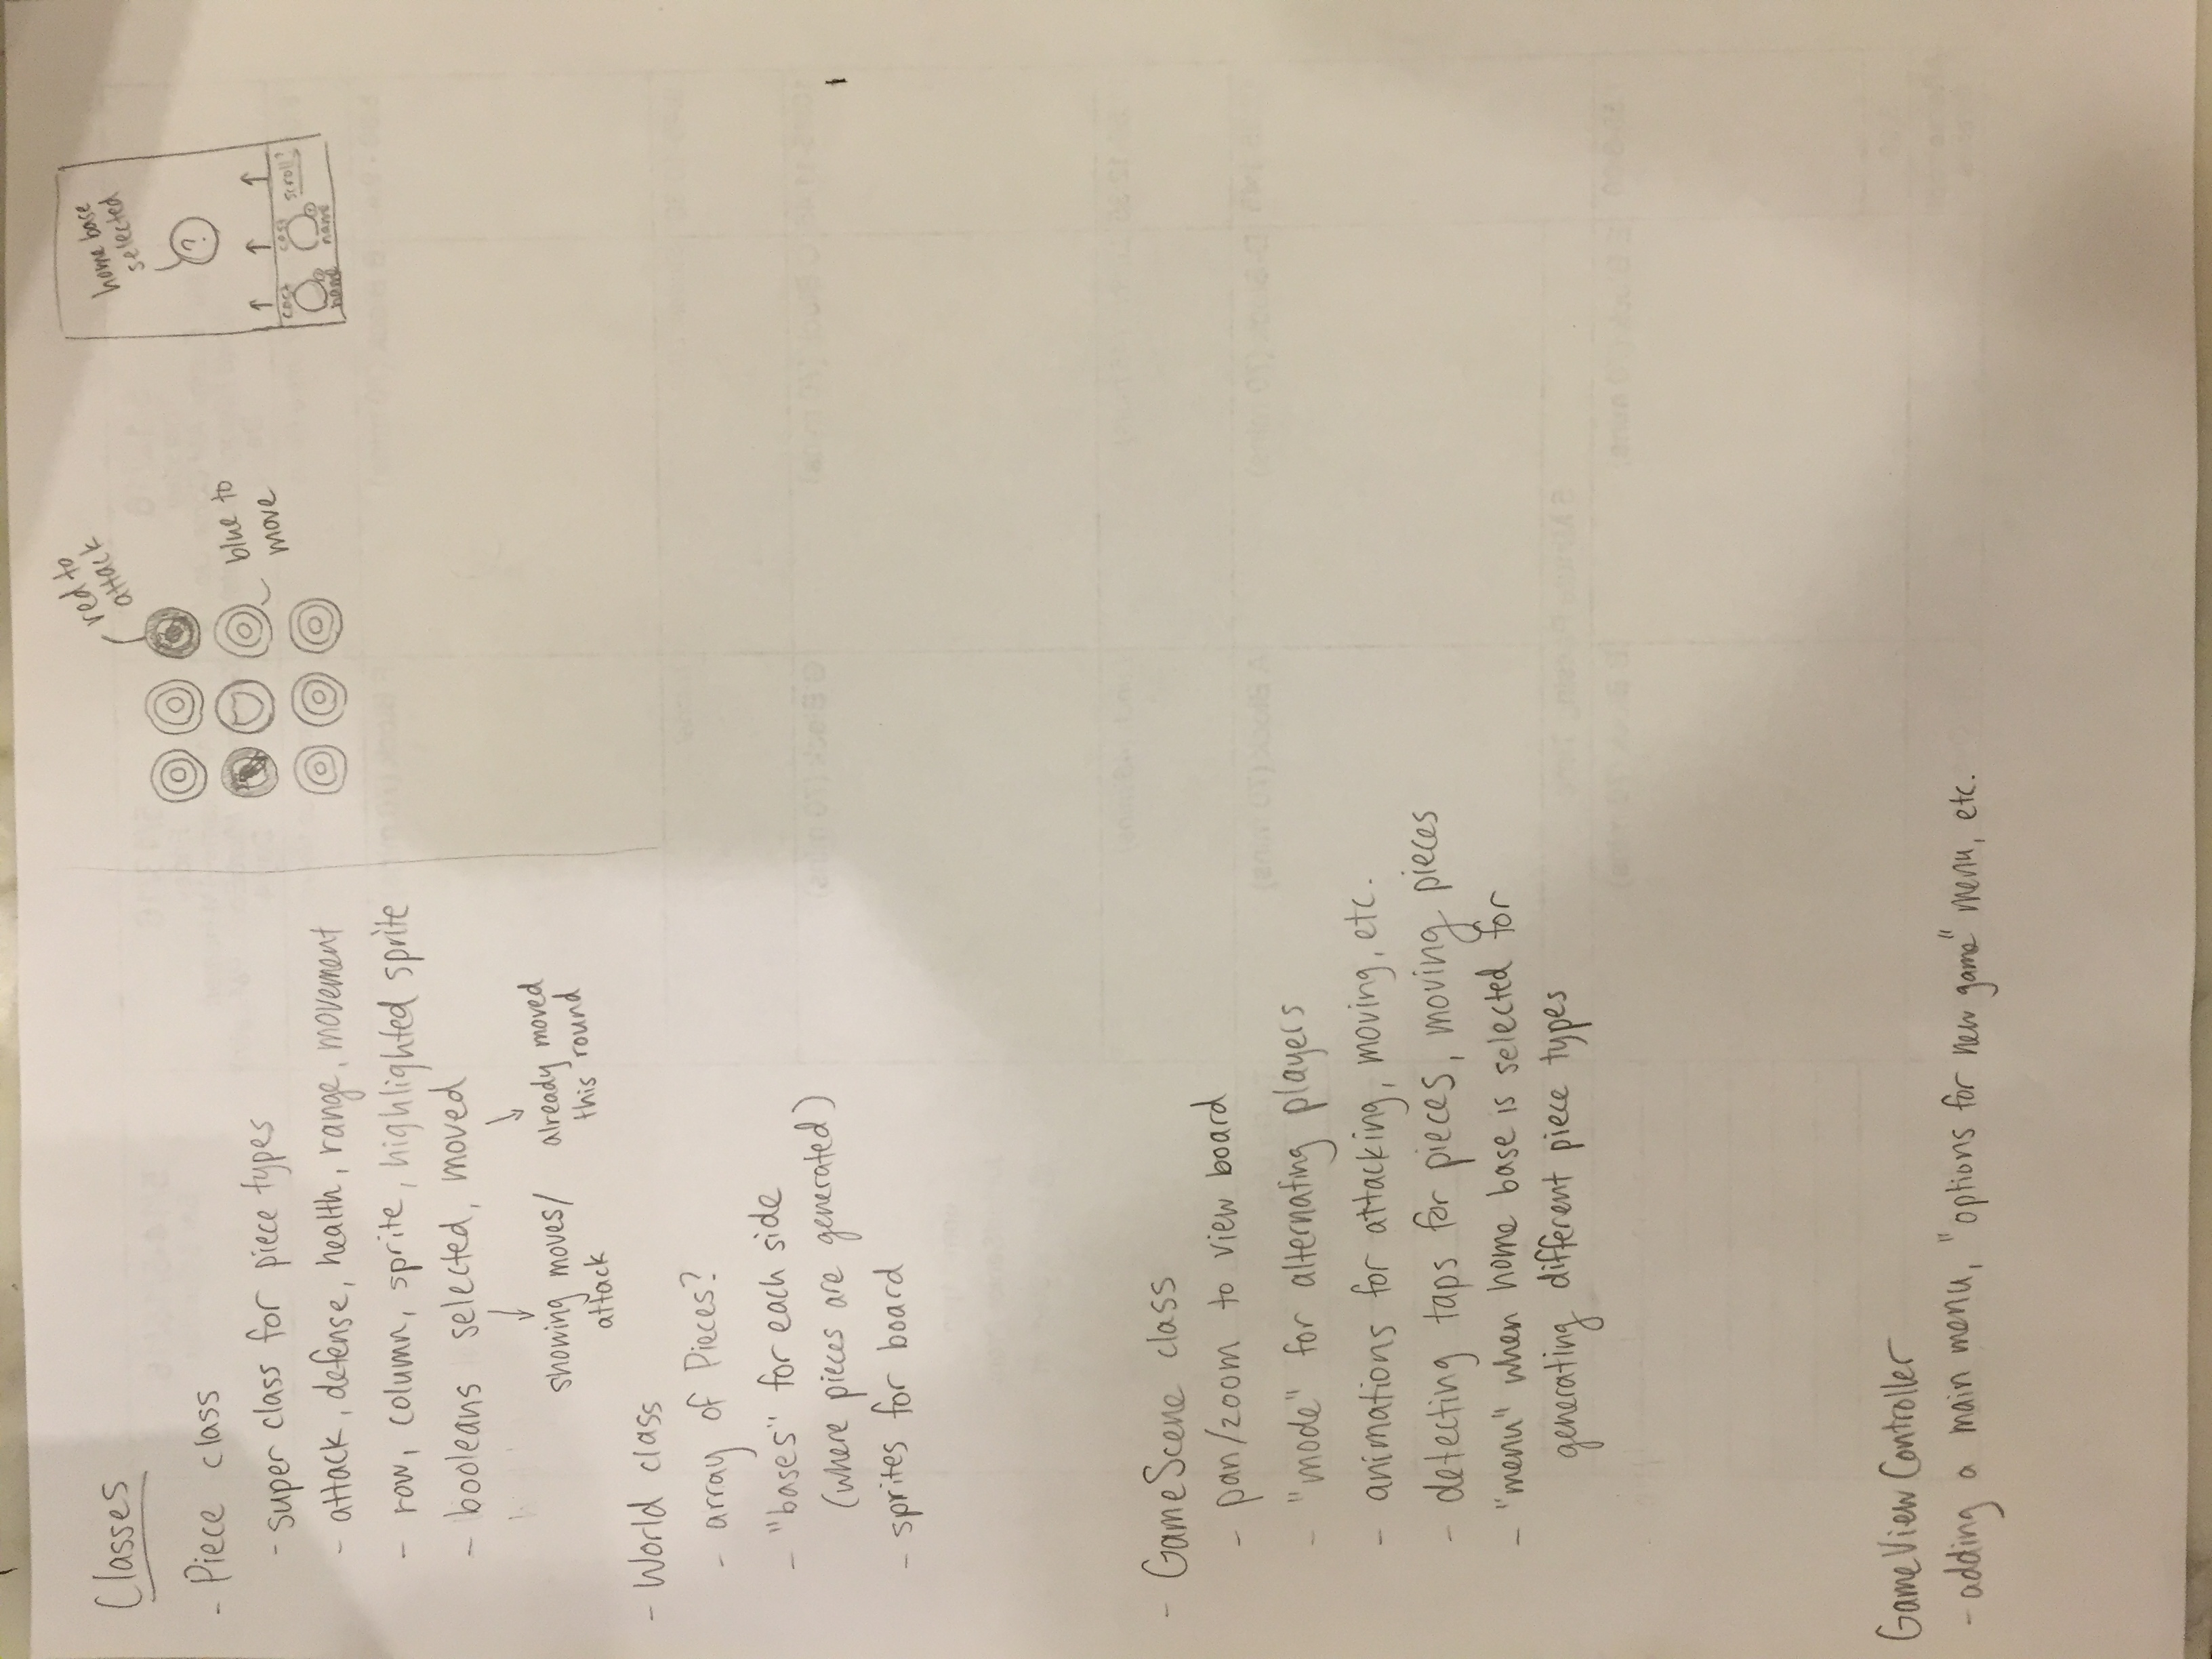 Classes
- Piece class
- super class for piece types
- attack, defense, health, range, movement
- row, column, sprite, highlighted sprite
- booleans selected, moved
showing moves/
attack
already moved
this round
- World class
- array of Pieces?
- "bases" for each side
(where pieces are generated)
- sprites for board
- GameScene class
- pan/zoom to view board
- "mode" for alternating players
- animations for attacking, moving, etc.
- detecting taps for pieces, moving pieces
- "menu" when home base is selected for
generating different piece types
GameViewController
- adding a main menu, "options for new game" menu, etc.
red to
attack
blue to
move
home base
selected
?
cost
name
cost
name
scroll?